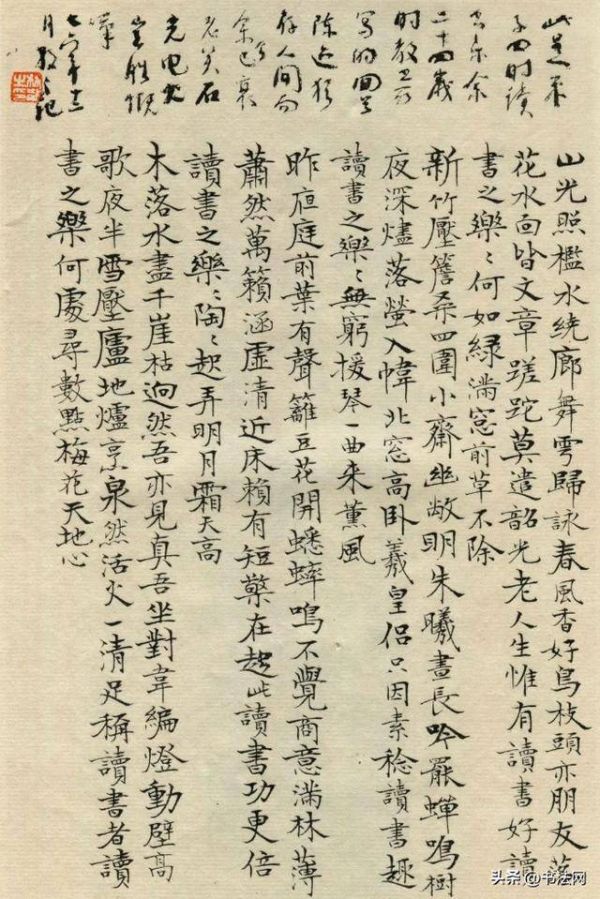 此是朱
子四时讀
书乐余
二十四歲
时教
写的回
陈迹犹
存人间而
余已衰
老矣石
光电火
豈胜慨
嘆
七六年十二
月散之记
山光照檻水绕廊舞雩歸詠春風香好鳥枝頭亦朋友落
花水面皆文章蹉跎莫遣韶光老人生惟有讀書好讀
書之樂〻何如綠滿窓前草不除
新竹壓簷桑四圍小齋幽敞明朱曦晝長吟罷蟬鳴樹
夜深燼落螢入幃北窓高卧羲皇侣只因素稔讀書趣
讀書之樂〻無窮援琴一曲来薰風
昨夜庭前葉有聲籬豆花開蟋蟀鳴不覺商意滿林薄
蕭然萬籟涵虛清近床賴有短檠在趁此讀書功更倍
讀書之樂〻陶〻起弄明月霜天高
木落水盡千崖枯迥然吾亦見真吾坐對韋編燈動壁高
歌夜半雪壓廬地爐烹泉然活火一清足稱讀書者讀
書之樂何處尋數點梅花天地心
头条@书法网